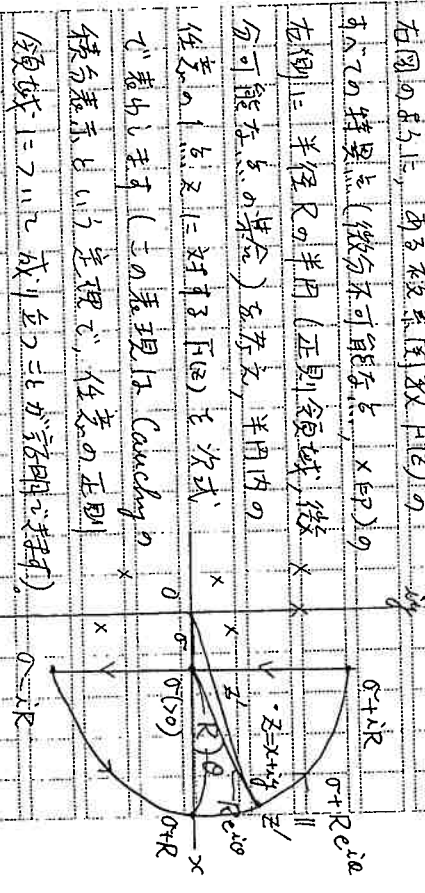 右図のように, ある複素関数 F(z) の
すべての特異点 (微分不可能な点, ×印) の
右側に 半径Rの半円 (正則領域, 微
分可能な点の集合) を考え, 半円内の
任意の1点 z に対する F(z) を 次式
で表わします (この表現は Cauchyの
積分表示という定理で, 任意の正則
領域について成り立つことが証明できます)。
iy
σ+iR
σ+Re^{iθ}
=
z'
z=x+iy
z'
Re^{iθ}
R
θ
O
σ
σ(>0)
σ+R
x
σ-iR